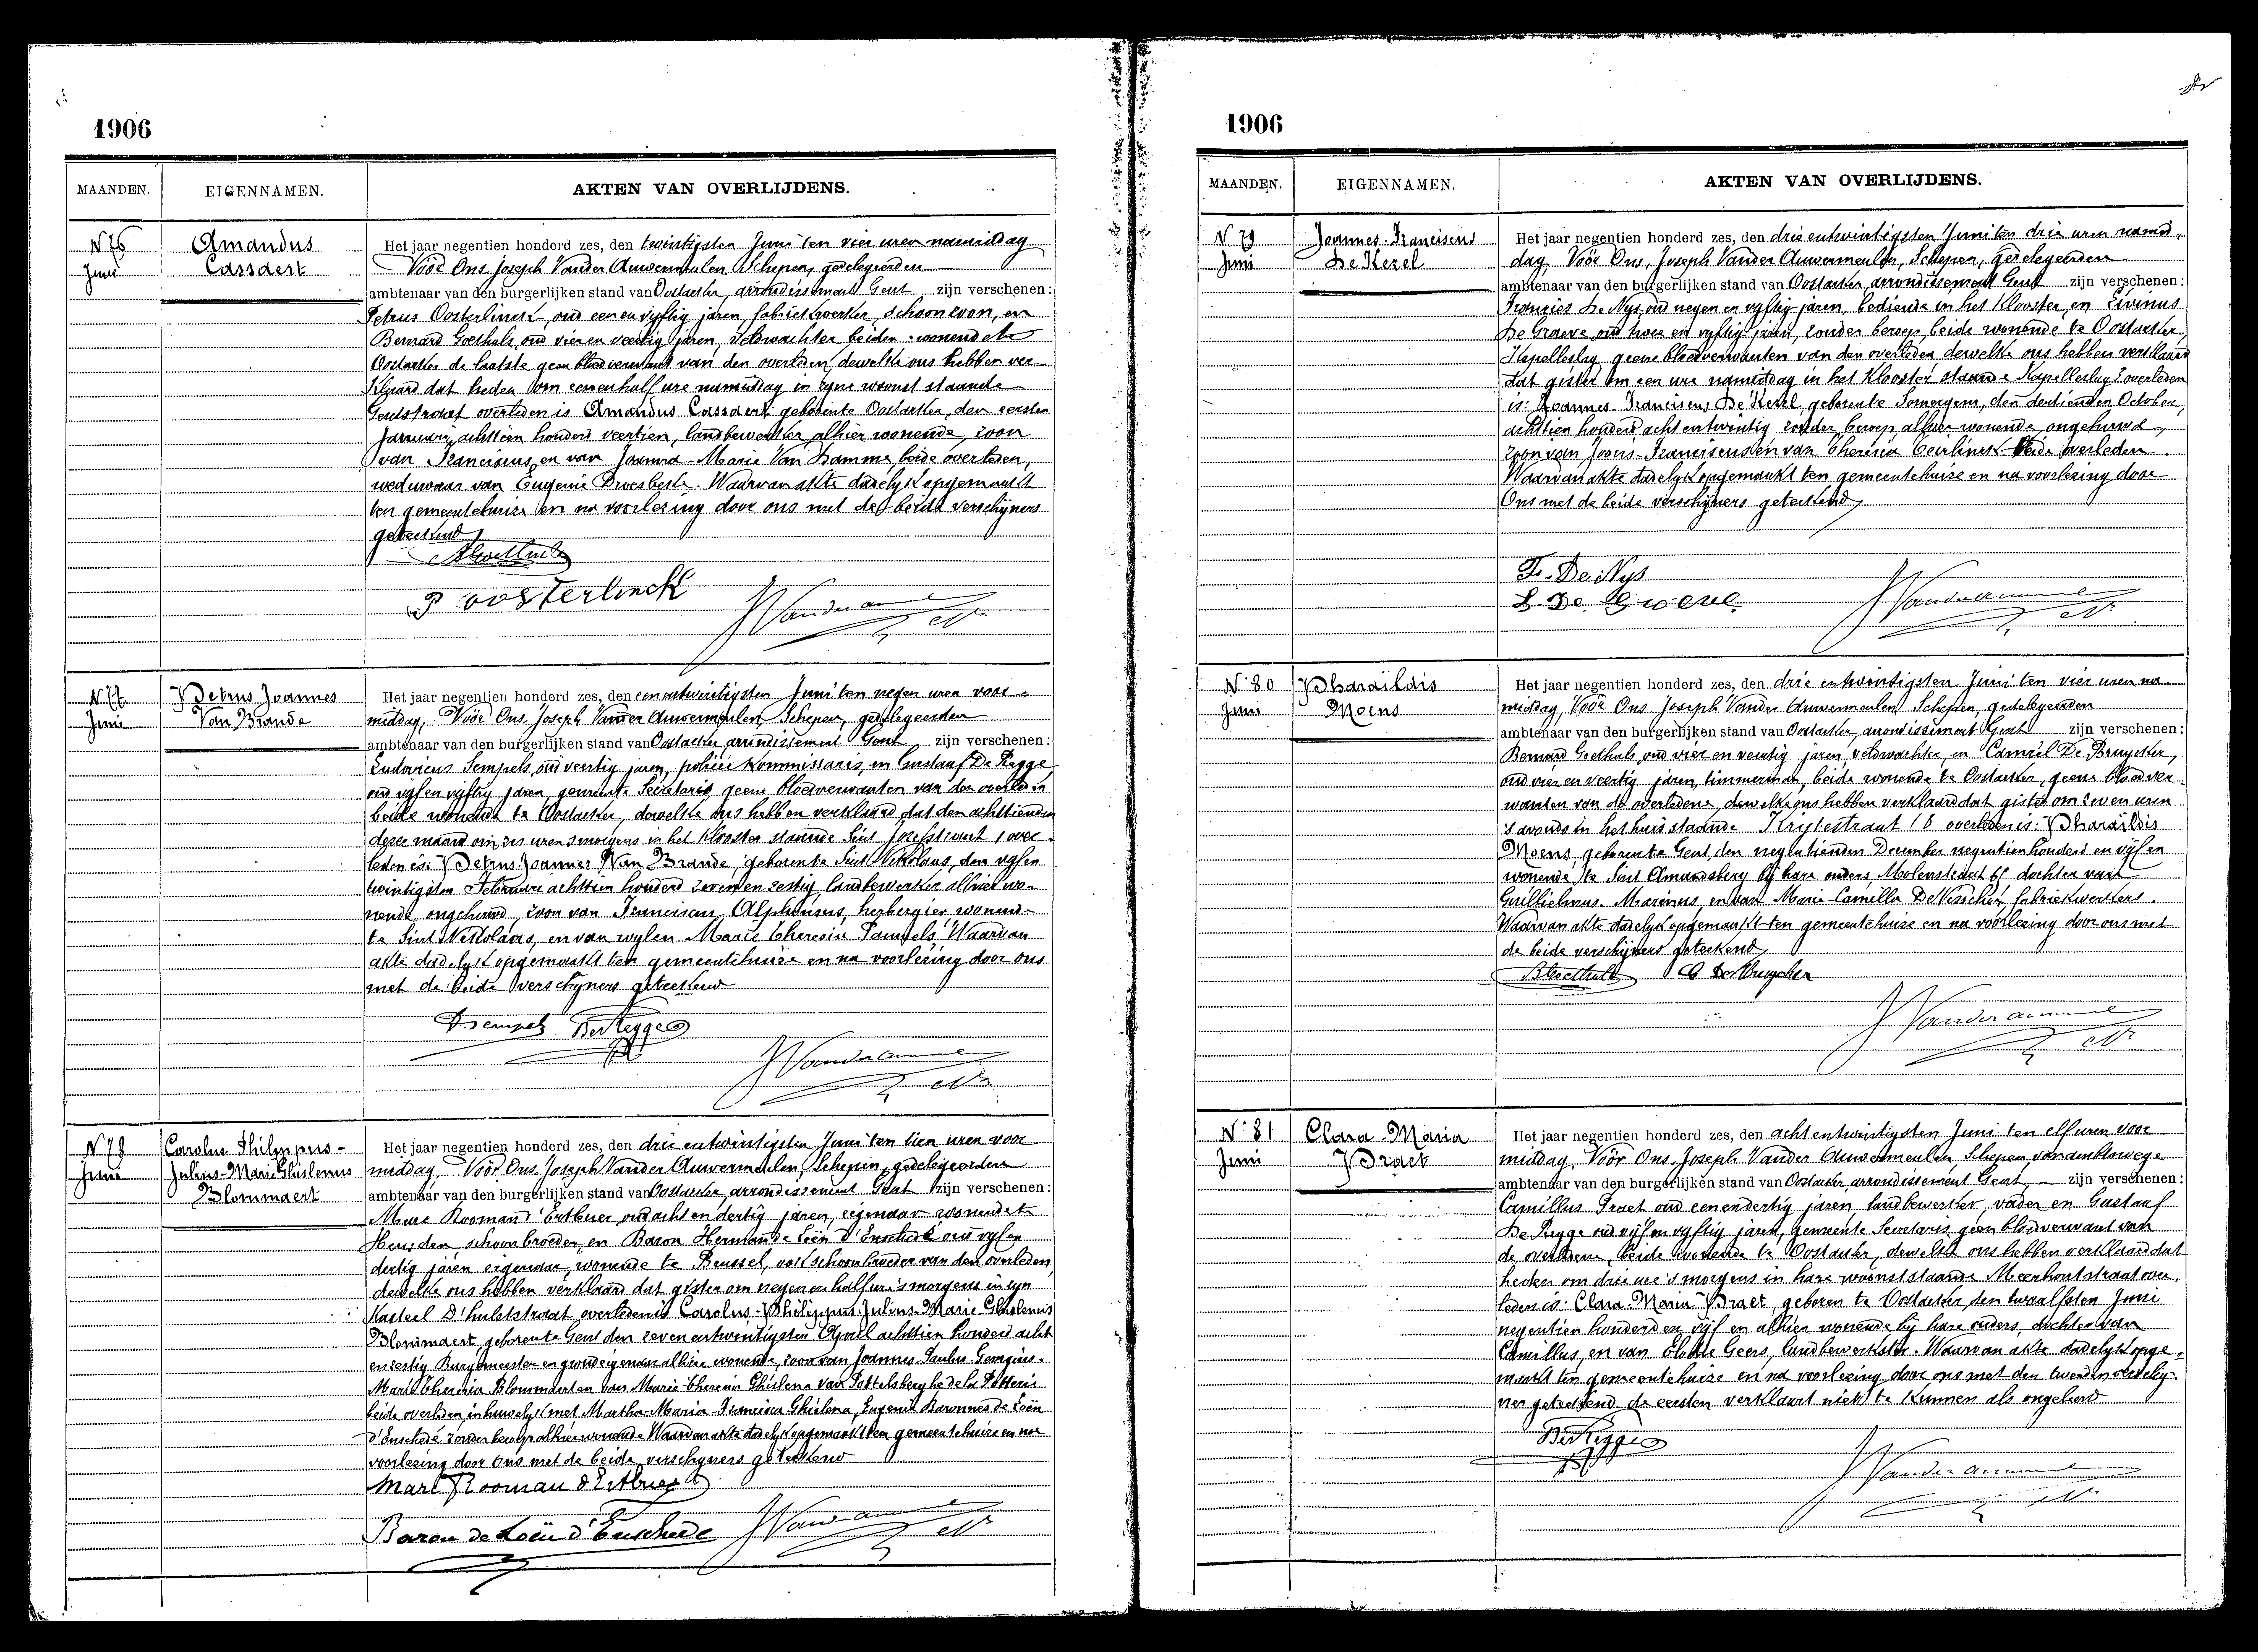 1906
MAANDEN. EIGENNAMEN. AKTEN VAN OVERLIJDENS.
N 76 Juni
Amandus Cassaert
Het jaar negentien honderd zes, den twintigsten Juni ten vier uren namiddag
Vóór Ons Joseph Vander Auwermeulen Schepen, gedelegeerden
ambtenaar van den burgerlijken stand van Oostacker, arrondissement Gent zijn verschenen:
Petrus Oosterlinck, oud een en vijftig jaren, fabriekwerker, schoonzoon, en
Bernard Goethals, oud vier en veertig jaren, veldwachter beiden wonende te
Oostacker de laatste geen bloedverwant van den overleden, dewelke ons hebben ver
klaard dat heden om een en half ure namiddag in zyne woonst staande
Gentstraat overleden is Amandus Cassaert geboren te Oostacker, den eersten
Januari achttien honderd veertien, landbewerker, alhier wonende, zoon
van Franciscus en van Joanna-Marie Van Damme beide overleden,
weduwaar van Eugenie Droesbeke. Waarvan akte dadelyk opgemaakt
ten gemeentehuize en na voorlezing door ons met de beide verschijners
geteekend
P Oosterlinck
N 77 Juni
Petrus Joannes Van Brande
Het jaar negentien honderd zes, den een entwintigsten Juni ten negen uren voor-
middag, Vóór Ons Joseph Vander Auwermeulen, Schepen, gedelegeerden
ambtenaar van den burgerlijken stand van Oostacker arrondissement Gent zijn verschenen:
Ludovicus Sempels, oud veertig jaren, policie Kommissaris, en Gustaaf De Regge
oud vyf en vyftig jaren, gemeente Secretaris, geene bloedverwanten van den overleden
beide wonende te Oostacker, dewelke ons hebben verklaard, dat den achttienden
dezer maand om zes uren smorgens in het Klooster staande Sint Jozefstraat 1 over-
leden is: Petrus Joannes Van Brande, geboren te Sint Nikolaas, den vyf en
twintigsten Februari achttien honderd zeven en zestig, landbewerker alhier wo-
nende ongehuwd, zoon van Franciscus Alphonsus, herbergier wonend-
te Sint Nikolaas, en van wylen Marie Theresia Pauwels Waarvan
akte dadelyk opgemaakt ten gemeentehuize en na voorlezing door ons
met de beide verschyners geteekend
N 78 Juni
Carolus Philippus-
Julius-Marie Ghislenus
Blommaert
Het jaar negentien honderd zes, den drie entwintigsten Juni ten tien uren voor
middag, Vóór Ons Joseph Vander Auwermeulen, Schepen, gedelegeerden
ambtenaar van den burgerlijken stand van Oostacker, arrondissement Gent zijn verschenen:
Marc Rooman d'Ertbuer, oud acht en dertig jaren, eigenaar wonende te
Heusden schoonbroeder, en Baron Herman de Loën D'Enschedé oud vyf en
dertig jaren eigenaar, wonende te Brussel, ook schoonbroeder van den overleden,
dewelke ons hebben verklaard dat gister om negen en half ure smorgens in zyn
Kasteel D'hulststraat overleden is Carolus-Philippus-Julius-Marie Ghislenus
Blommaert, geboren te Gent den zeven entwintigsten April achttien honderd acht
en zestig Burgemeester en grondeigenaar alhier wonende, zoon van Joannes-Paulus-Georgius-
Marie Theresia Blommaert en van Marie Theresia Ghislena van Pottelsberghe de la Potterie
beide overleden in huwelyk met Martha-Maria-Francisca Ghislena, Eugenie Baronnes de Loën
d'Enschedé zonder beroep alhier wonende Waarvan akte dadelyk opgemaakt ten gemeentehuize en na
voorlezing door ons met de beide verschyners geteekend
Marc Rooman d'Ertbuer
Baron de Loën d'Enschede
1906
MAANDEN. EIGENNAMEN. AKTEN VAN OVERLIJDENS.
N 79 Juni
Joannes-Franciscus
De Kezel
Het jaar negentien honderd zes, den drie entwintigsten Juni ten drie uren namid-
dag, Vóór Ons, Joseph Vander Auwermeulen, Schepen, gedelegeerden
ambtenaar van den burgerlijken stand van Oostacker arrondissement Gent zijn verschenen:
Francies De Nys, oud negen en vyftig jaren, bediende in het Klooster, en Livinus
De Graeve oud twee en vyftig jaren, zonder beroep, beide wonende te Oostacker,
Kapelleslag geene bloedverwanten van den overleden dewelke ons hebben verklaard
dat gister om een ure namiddag in het Klooster staande Kapelleslag 2 overleden
is: Joannes-Franciscus De Kezel, geboren te Somergem, den dertienden October,
achttien honderd acht entwintig zonder beroep alhier wonende, ongehuwd,
zoon van Joous-Franciscus en van Theresia Geerlinck beide overleden
Waarvan akte dadelyk opgemaakt ten gemeentehuize en na voorlezing door
Ons met de beide verschijners geteekend
Fr. De Nys
L. De Graeve
N 80 Juni
Pharaïldis
Moens
Het jaar negentien honderd zes, den drie entwintigsten Juni ten vier uren na-
middag, Vóór Ons Joseph Vander Auwermeulen, Schepen, gedelegeerden
ambtenaar van den burgerlijken stand van Oostacker arrondissement Gent zijn verschenen:
Bernard Goethals, oud vier en veertig jaren, veldwachter, en Camiel De Bruycker,
oud vier en veertig jaren, timmerman, beide wonende te Oostacker, geene bloedver-
wanten van de overledene, dewelke ons hebben verklaard dat gister om zeven uren
s'avonds in het huis staande Krijtestraat 18 overleden is: Pharaïldis
Moens, geboren te Gent, den negentienden December negentien honderd en vijf en
wonende te Sint Amandsberg bij hare ouders, Molenstraat 61 dochter van
Guillielmus-Marinus, en van Marie-Camilla De Visscher, fabriekwerkers.
Waarvan akte dadelyk opgemaakt ten gemeentehuize en na voorlezing door ons met
de beide verschijners geteekend
BGoethals C De Bruycker
N 81 Juni
Clara-Maria
Praet
Het jaar negentien honderd zes, den acht entwintigsten Juni ten elf uren voor
middag, Vóór Ons, Joseph Vander Auwermeulen Schepen, van ambtswege
ambtenaar van den burgerlijken stand van Oostacker, arrondissement Gent, zijn verschenen:
Camillus Praet oud een en dertig jaren, landbewerker, vader en Gustaaf
De Regge oud vijf en vyftig jaren, gemeente Secretaris, geen bloedverwant van
de overledene, beide wonende te Oostacker, dewelke ons hebben verklaard dat
heden om drie ure 's morgens in hare woonst staande Meerhoutstraat over-
leden is: Clara-Maria Praet, geboren te Oostacker, den twaalfsten Juni
negentien honderd en vijf en alhier wonende bij hare ouders, dochter van
Camillus, en van Elodie Geers, landbewerkster. Waarvan akte dadelyk opge-
maakt ten gemeentehuize en na voorlezing door ons met den tweeden verschy-
ner geteekend de eersten verklaart niet te kunnen als ongeleerd